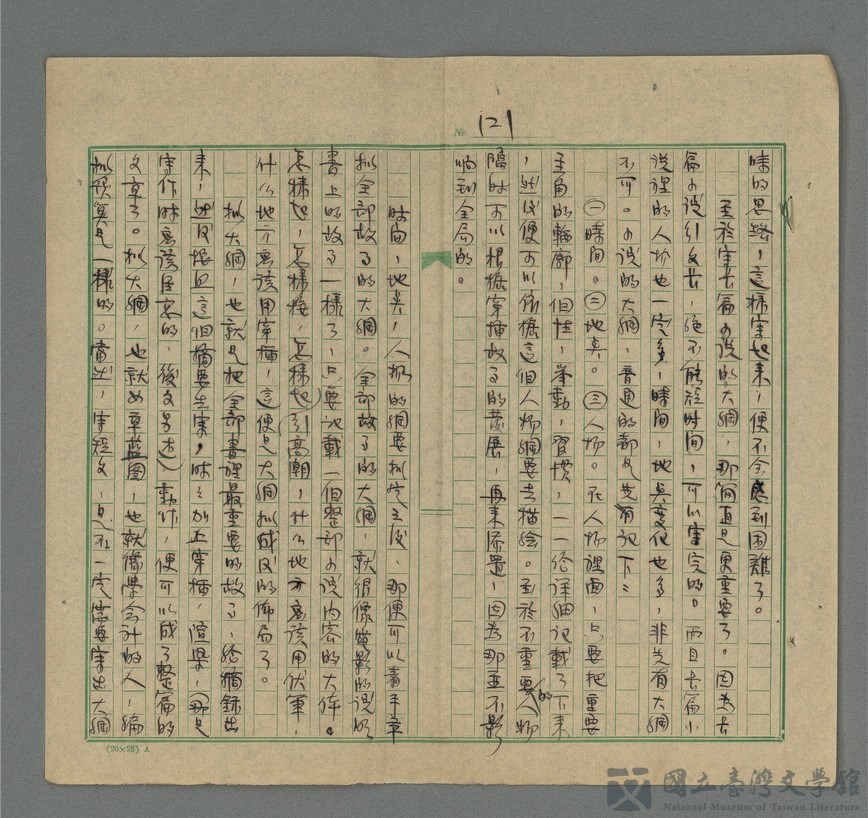 No. 121
味的思緒，這樣寫起來，便不会感到困難了。
至於寫長篇小说的大綱，那簡直是更重要了。因為長
篇小说引文长，絕不能短时间，可以寫完的。而且长篇小
说裡的人物也一定多，時间，地点变化也多，非先有大綱
不可。小说的大綱，普通的都是先有记下：
㊀時间。㊁地点。㊂人物。在人物裡面，只要把重要
主角的輪廓，個性，举動，習慣，一一给详细记載了下来
，然後便可以依據這個人物綱要去描绘。至於不重要的人物
隨时可以根據穿插故事的發展，再来添置，因為那並不影
响到全局的。
时间，地点，人物的綱要拟定之後，那便可以着手章
拟全部故事的大綱。全部故事的大綱，就很像電影的说明
書上的故事一樣了，只要记載一個整部小说内容的大体。
怎樣起，怎樣接，怎樣引起高潮，什么地方應该用伏筆，
什么地方應该用穿插，這便是大綱拟成後的佈局了。
拟大綱，也就是把全部書裡最重要的故事，给摘録出
来，然後按照這個摘要去寫，时时加上穿插，渲染，那是
寫作时應该注意的，後文另述）動作，便可以成了整篇的
文章了。拟大綱，也就如草蓝图，也就像學会计的人，编
拟预算是一樣的。當然，寫短文，是不一定需要寫出大綱
(20×25) A
國立臺灣文學館
National Museum of Taiwan Literature